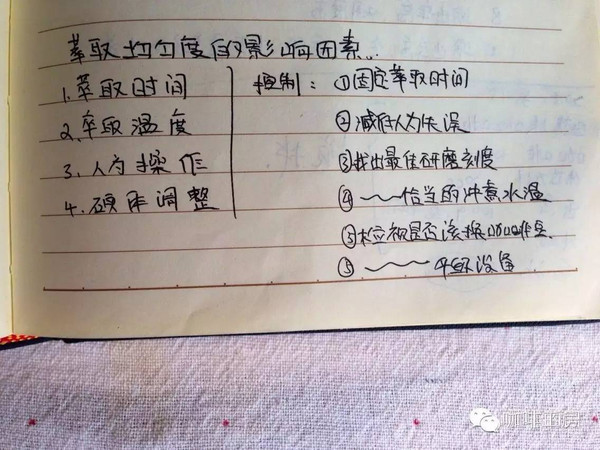 萃取均匀度的影响因素.
1. 萃取时间
2. 萃取温度
3. 人为操作
4. 硬件调整
控制: ①固定萃取时间
②减低人为失误
③找出最佳研磨刻度
④~~恰当的冲煮水温
⑤检视是否该换
⑤~~ 设备